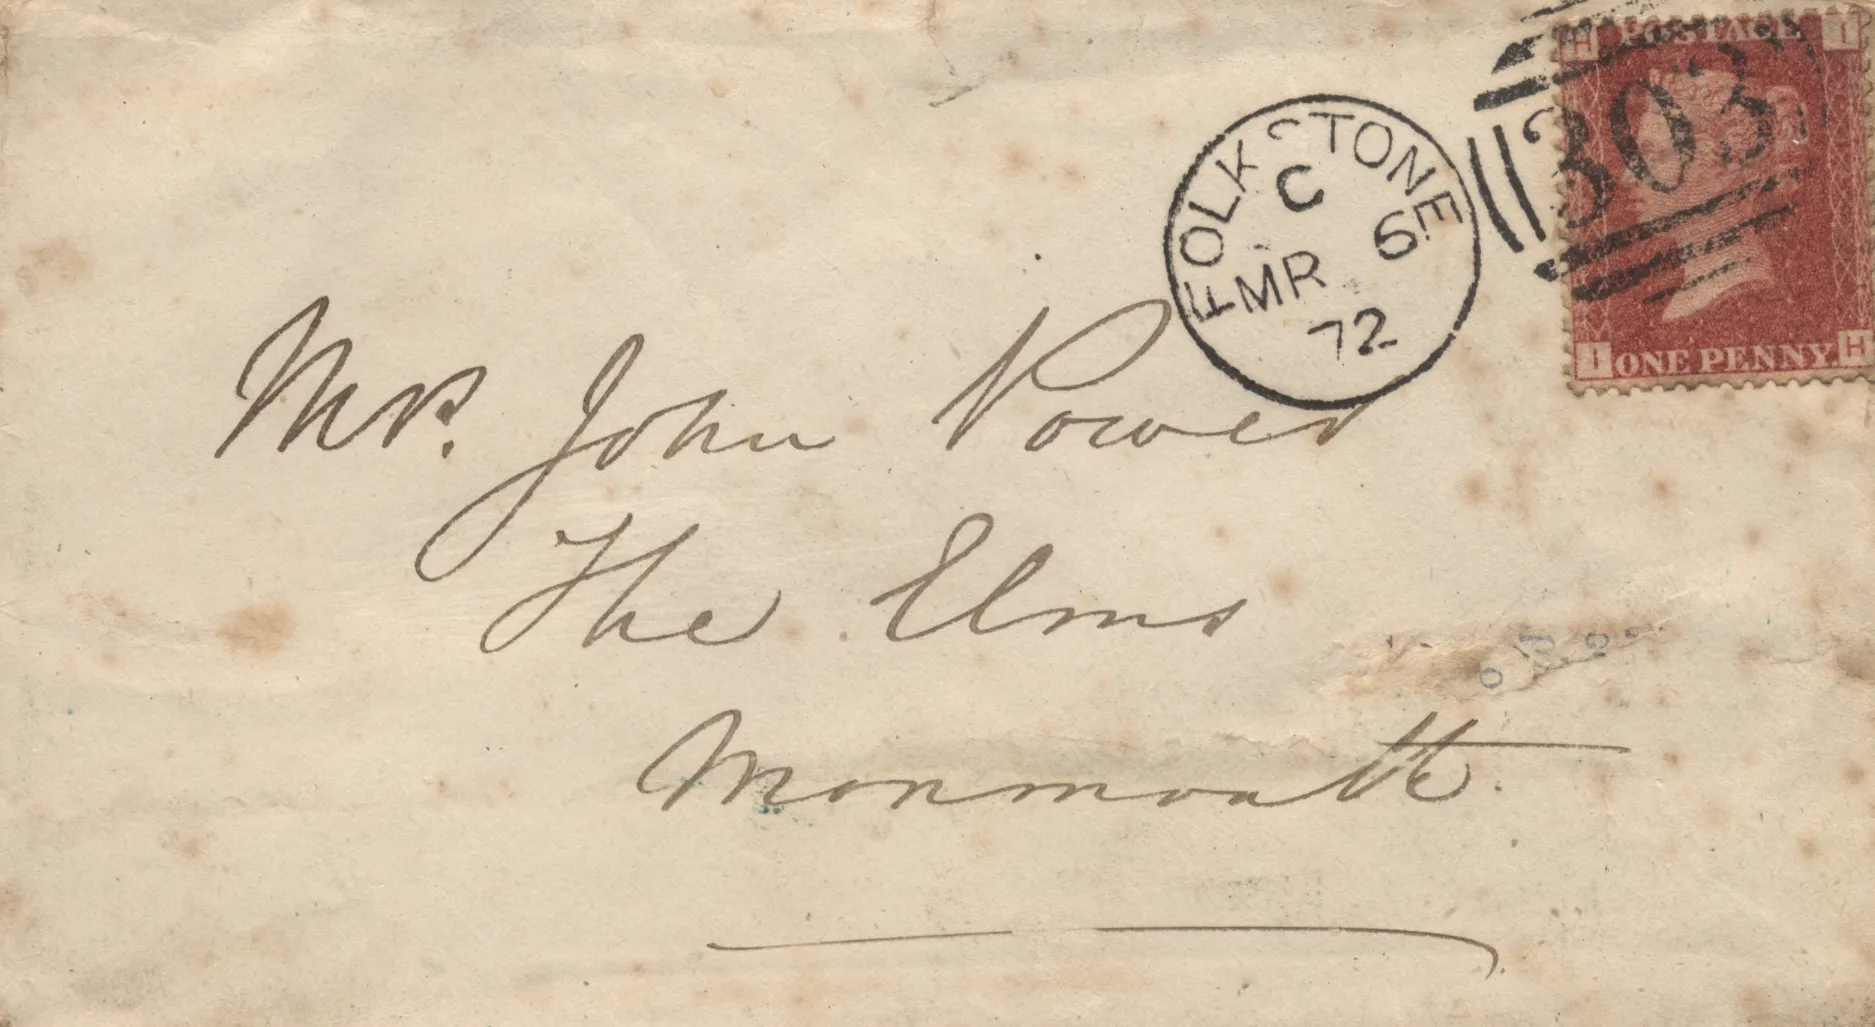 H POSTAGE I
303
FOLKSTONE
C
MR 6
72
I ONE PENNY H
Mrs. John Power
The Elms
Monmouth.